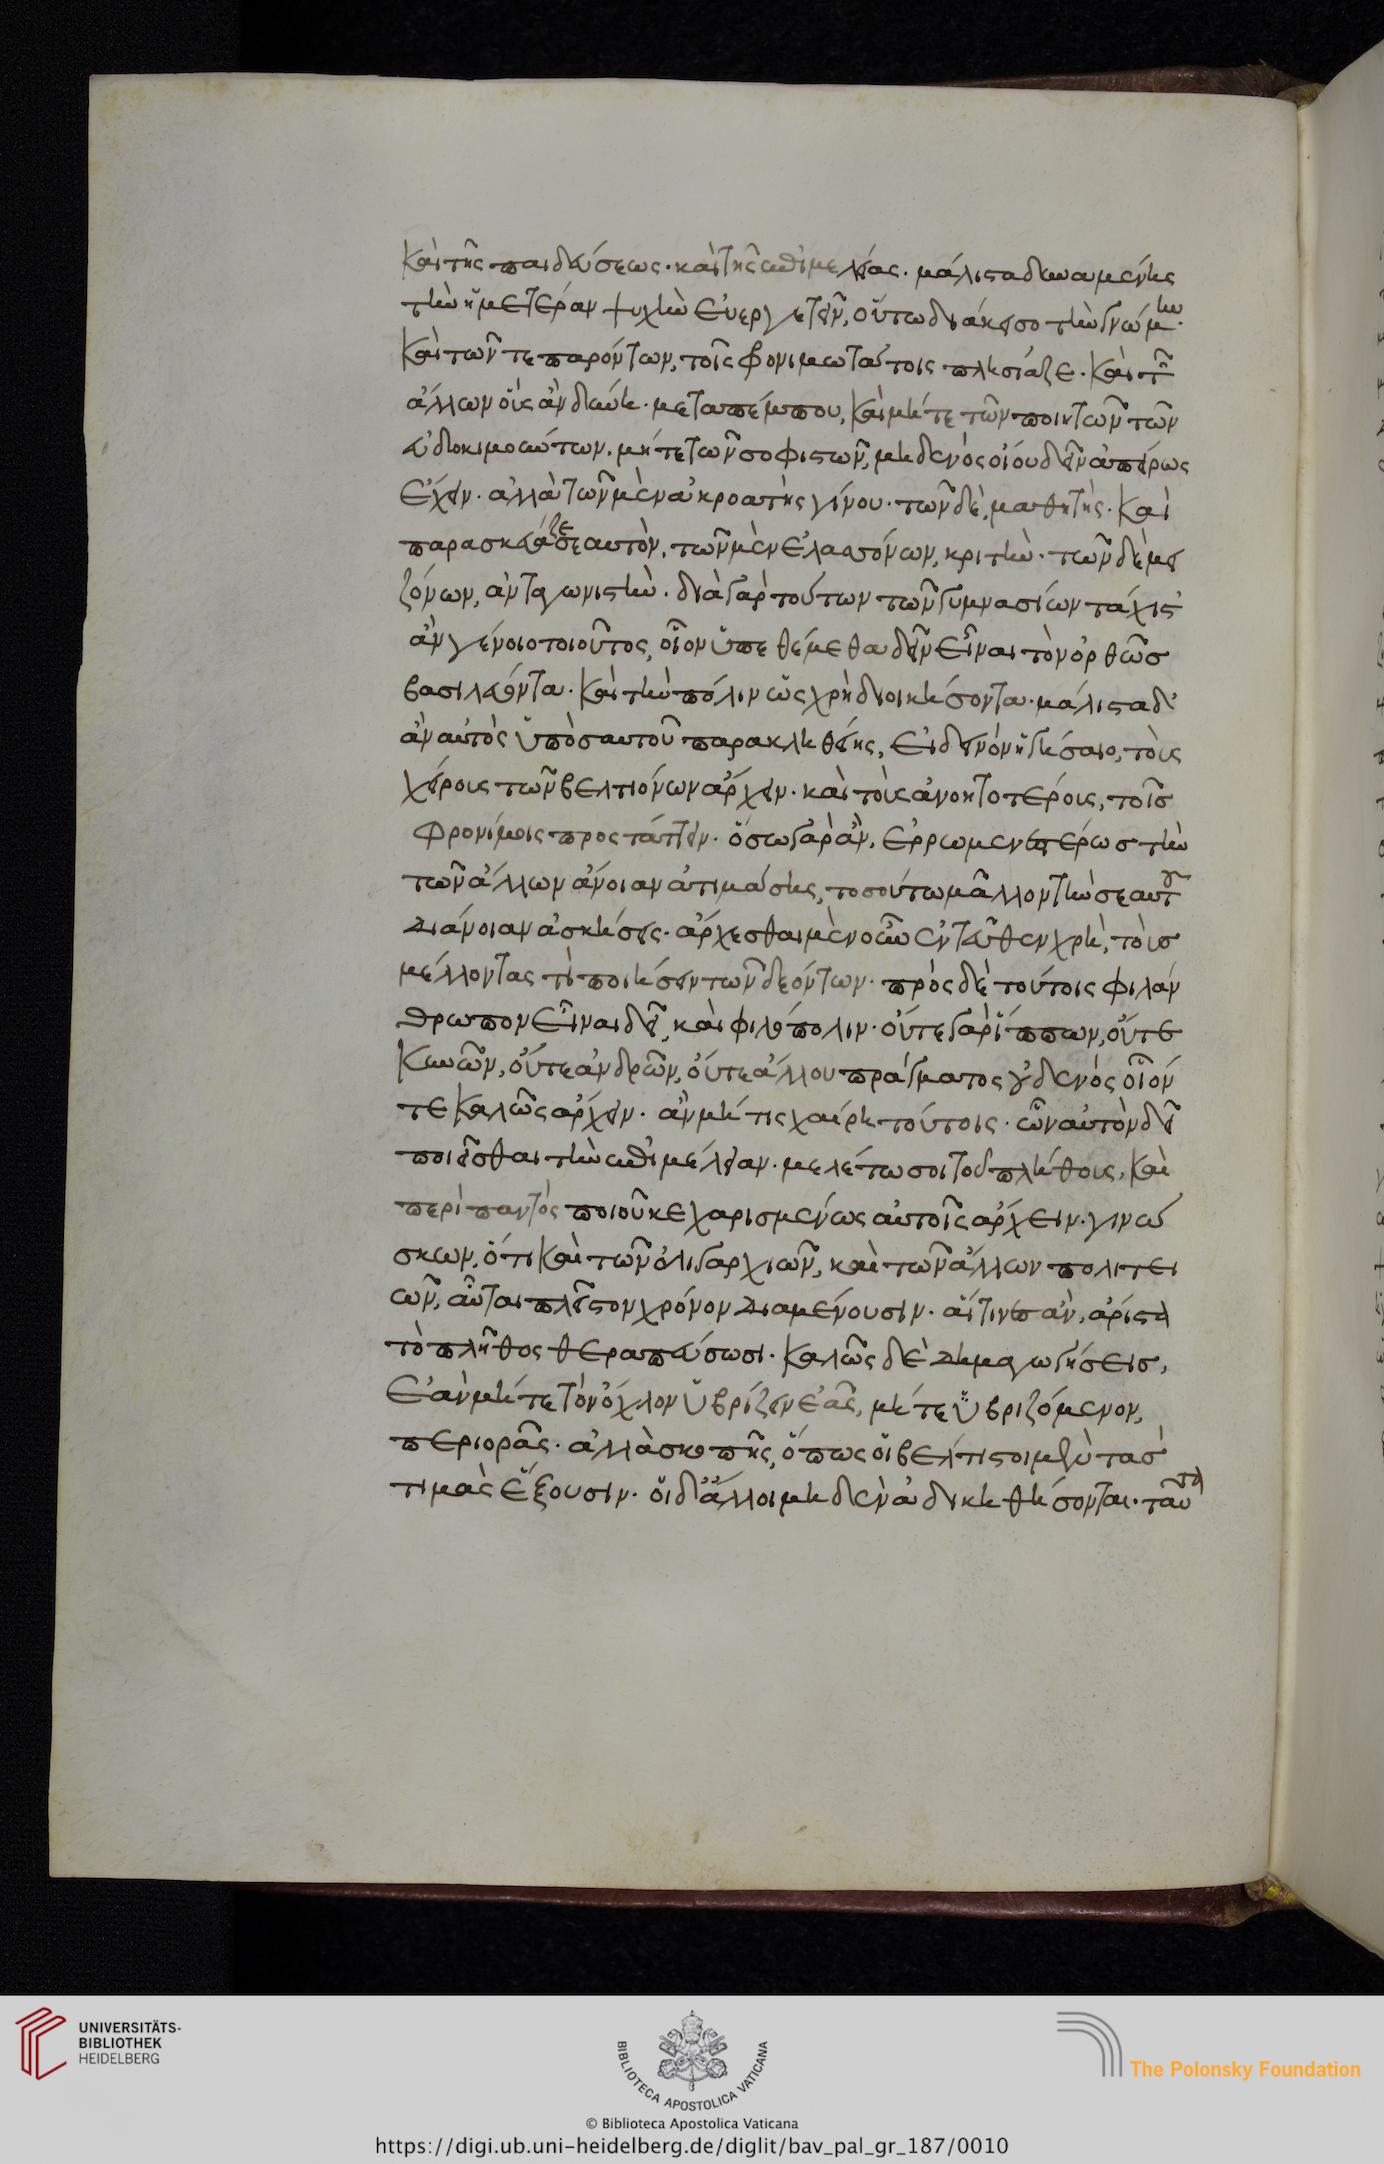 καὶ τῆς παιδεύσεως. καὶ τῆς ἐπιμελείας. μάλιστα δυναμένης
τὴν ἡμετέραν ψυχὴν εὐεργετεῖν, οὕτω διάκεισο τὴν γνώμην.
καὶ τῶν τε παρόντων, τοῖς φρονιμωτάτοις πλησίαζε. καὶ τῶν
ἄλλων οὓς ἂν δύνῃ. μεταπέμπου, καὶ μήτε τῶν ποιητῶν τῶν
εὐδοκιμούντων. μήτε τῶν σοφιστῶν, μηδενὸς οἴου δεῖν ἀπείρως
ἔχειν. ἀλλὰ τῶν μὲν ἀκροατὴς γίνου. τῶν δὲ, μαθητής. καὶ
παρασκεύαζε σεαυτὸν, τῶν μὲν ἐλαττόνων, κριτὴν. τῶν δὲ μει
ζόνων, ἀνταγωνιστὴν. διὰ γὰρ τούτων τῶν γυμνασίων τάχιστ'
ἂν γένοιο τοιοῦτος, οἷον ὑπεθέμεθα δεῖν εἶναι τὸν ὀρθῶς
βασιλεύοντα. καὶ τὴν πόλιν ὡς χρὴ διοικήσοντα. μάλιστα δ'
ἂν αὐτὸς ὑπὸ σαυτοῦ παρακληθείης, εἰ δεινὸν ἡγήσαιο, τοὺς
χείρους τῶν βελτιόνων ἄρχειν. καὶ τοὺς ἀνοητοτέρους, τοῖς
φρονίμοις προστάττειν. ὅσῳ γὰρ ἂν, ἐρρωμενεστέρως τὴν
τῶν ἄλλων ἄνοιαν ἀτιμάσῃς, τοσούτῳ μᾶλλον τὴν σεαυτοῦ
διάνοιαν ἀσκήσεις. ἄρχεσθαι μὲν οὖν ἐντεῦθεν χρὴ, τοὺς
μέλλοντάς τι ποιήσειν τῶν δεόντων. πρὸς δὲ τούτοις φιλάν
θρωπον εἶναι δεῖ, καὶ φιλόπολιν. οὔτε γὰρ ἵππων, οὔτε
κυνῶν, οὔτε ἀνδρῶν, οὔτε ἄλλου πράγματος οὐδενὸς οἷόν
τε καλῶς ἄρχειν. ἂν μή τις χαίρῃ τούτοις. ὧν αὐτὸν δεῖ
ποιεῖσθαι τὴν ἐπιμέλειαν. μελέτω σοι τοῦ πλήθους, καὶ
περὶ παντὸς ποιοῦ κεχαρισμένως αὐτοῖς ἄρχειν. γινώ
σκων, ὅτι καὶ τῶν ὀλιγαρχιῶν, καὶ τῶν ἄλλων πολιτει
ῶν, αὗται πλεῖστον χρόνον διαμένουσιν. αἵτινες ἂν, ἄριστα
τὸ πλῆθος θεραπεύσωσι. καλῶς δὲ δημαγωγήσεις,
ἐὰν μήτε τὸν ὄχλον ὑβρίζειν ἐᾷς, μήτε ὑβριζόμενον,
περιορᾷς. ἀλλὰ σκοπῇς, ὅπως οἱ βέλτιστοι μὲν τὰς
τιμὰς ἕξουσιν. οἱ δ' ἄλλοι μηδὲν ἀδικηθήσονται. ταῦτα
UNIVERSITÄTS-
BIBLIOTHEK
HEIDELBERG
BIBLIOTECA APOSTOLICA VATICANA
The Polonsky Foundation
© Biblioteca Apostolica Vaticana
https://digi.ub.uni-heidelberg.de/diglit/bav_pal_gr_187/0010